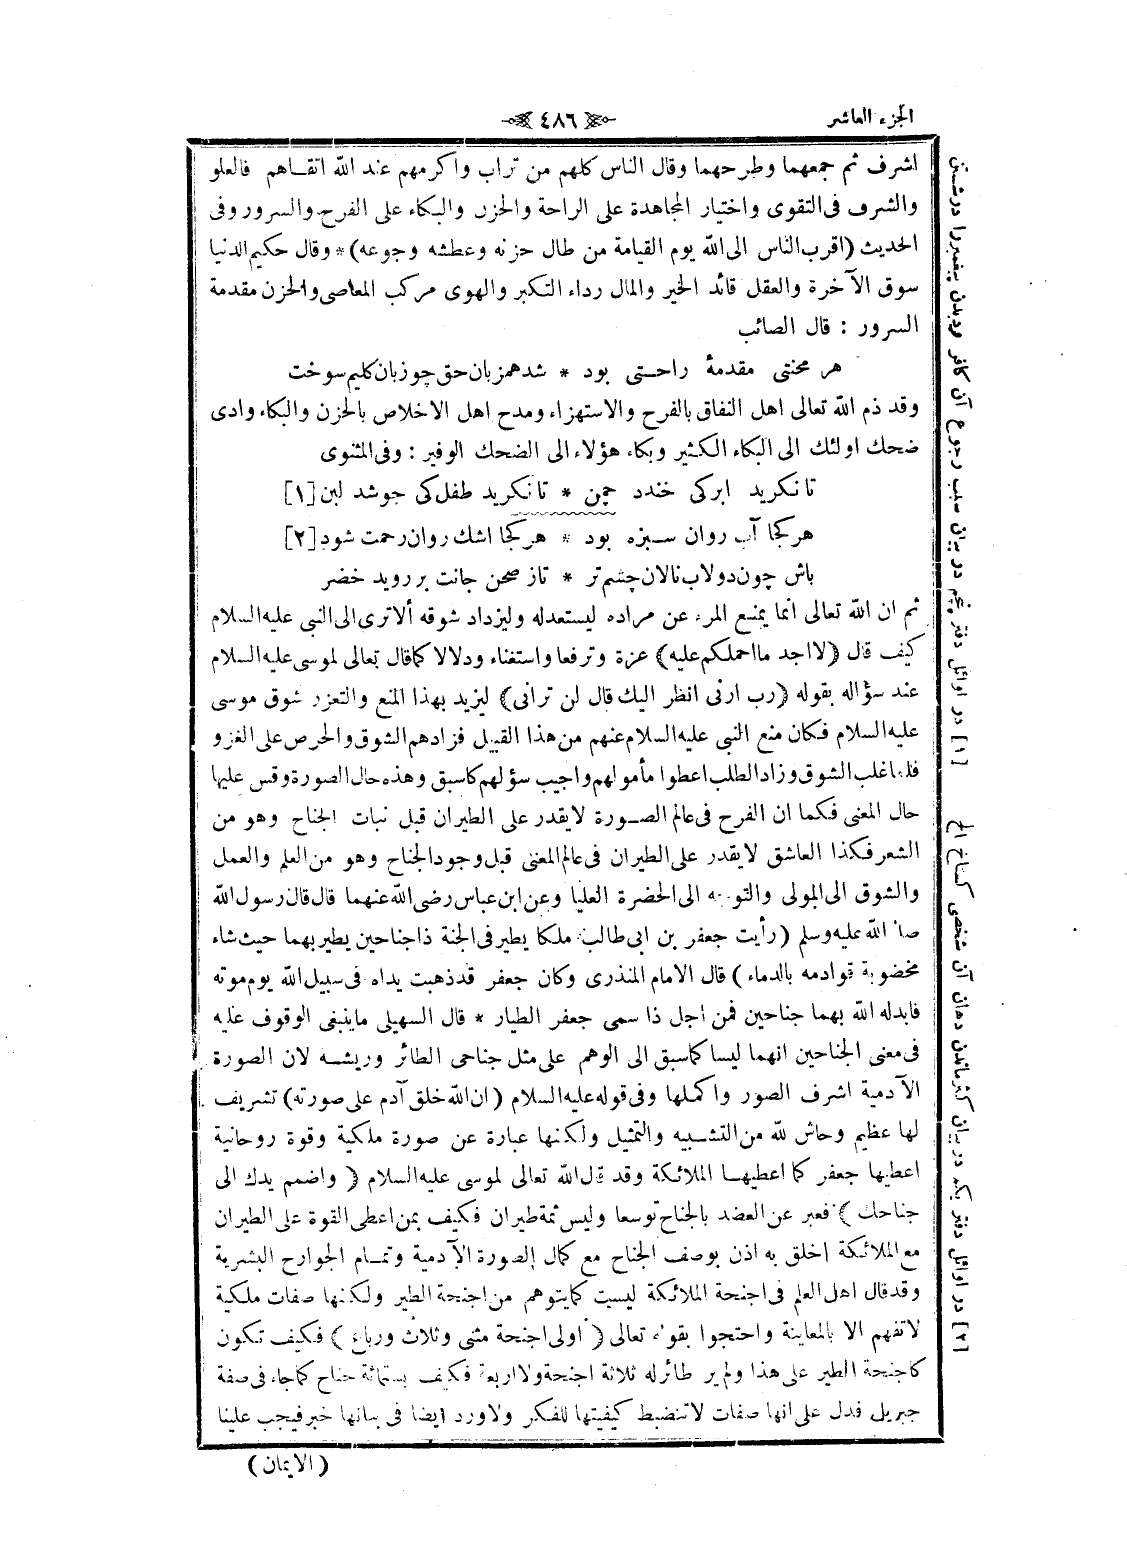 الجزء العاشر
٤٨٦
اشرف ثم جمعهما وطرحهما وقال الناس كلهم من تراب واكرمهم عند الله اتقـاهم فالعلو
والشرف فى التقوى واختيار المجاهدة على الراحة والحزن والبكاء على الفرح والسرور وفى
الحديث (اقرب الناس الى الله يوم القيامة من طال حزنه وعطشه وجوعه)* وقال حكيم الدنيا
سوق الآخرة والعقل قائد الخير والمال رداء التكبر والهوى مركب المعاصى والحزن مقدمة
السرور : قال الصائب
هر محنتى مقدمهٔ راحـتى بود * شد همزبان حق چو زبان كليم سوخت
وقد ذم الله تعالى اهل النفاق بالفرح والاستهزاء ومدح اهل الاخلاص بالحزن والبكاء وادى
ضحك اولئك الى البكاء الكثير وبكاء هؤلاء الى الضحك الوفير : وفى المثنوى
تا نكريد ابر كى خندد چمن * تا نكريد طفل كى جوشد لبن [١]
هر كجا آب روان سـبزه بود * هر كجا اشك روان رحمت شود [٢]
باش چون دولاب نالان چشم تر * تا ز صحن جانت بر رويد خضر
ثم ان الله تعالى انما يمنع المرء عن مراده ليستعد له وليزداد شوقه ألا ترى الى النبى عليه السلام
كيف قال (لا اجد ما احملكم عليه) عزة وترفعا واستغناء ودلالا كما قال تعالى لموسى عليه السلام
عند سؤاله بقوله (رب ارنى انظر اليك قال لن ترانى) ليزيد بهذا المنع والتعزر شوق موسى
عليه السلام فكان منع النبى عليه السلام عنهم من هذا القبيل فزادهم الشوق والحرص على الغزو
فلما غلب الشوق وزاد الطلب اعطوا مأمولهم واجيب سؤلهم كما سبق وهذه حال الصورة وقس عليها
حال المعنى فكما ان الفرح فى عالم الصـورة لا يقدر على الطيران قبل نبات الجناح وهو من
الشعر فكذا العاشق لا يقدر على الطيران فى عالم المعنى قبل وجود الجناح وهو من العلم والعمل
والشوق الى المولى والتوجه الى الحضرة العليا وعن ابن عباس رضى الله عنهما قال قال رسول الله
صلى الله عليه وسلم (رأيت جعفر بن ابى طالب ملكا يطير فى الجنة ذا جناحين يطير بهما حيث شاء
مخضوبة قوادمه بالدماء) قال الامام المنذرى وكان جعفر قد ذهبت يداه فى سبيل الله يوم موته
فابدله الله بهما جناحين فمن اجل ذا سمى جعفر الطيار * قال السهيلى ما ينبغى الوقوف عليه
فى معنى الجناحين انهما ليسا كما سبق الى الوهم على مثل جناحى الطائر وريشـه لان الصورة
الآدمية اشرف الصور واكملها وفى قوله عليه السلام (ان الله خلق آدم على صورته) تشريف
لها عظيم وحاش لله من التشـبيه والتمثيل ولكنها عبارة عن صورة ملكية وقوة روحانية
اعطيها جعفر كما اعطيهـا الملائكة وقد قال الله تعالى لموسى عليه السلام ( واضمم يدك الى
جناحك ) فعبر عن العضد بالجناح توسعا وليس ثمة طيران فكيف بمن اعطى القوة على الطيران
مع الملائكة اخلق به اذن بوصف الجناح مع كمال الصورة الآدمية وتمـام الجوارح البشرية
وقد قال اهل العلم فى اجنحة الملائكة ليست كما يتوهم من اجنحة الطير ولكنها صفات ملكية
لا تفهم الا بالمعاينة واحتجوا بقوله تعالى ( اولى اجنحة مثنى وثلاث ورباع ) فكيف تكون
كاجنحة الطير على هذا ولم ير طائر له ثلاثة اجنحة ولا اربعة فكيف بستمائة جناح كما جاء فى صفة
جبريل فدل على انها صفات لا تنضبط كيفيتها للفكر ولا ورد ايضا فى بيانها خبر فيجب علينا
(الايمان)
[١] در اوائل دفتر پنجم در بيان سبب رجوع آن كافر وديدن پيغمبر را در شستن
[٢] در اوائل دفتر يكم در بيان كژ ماندن دهان آن شخصى كستاخ الخ